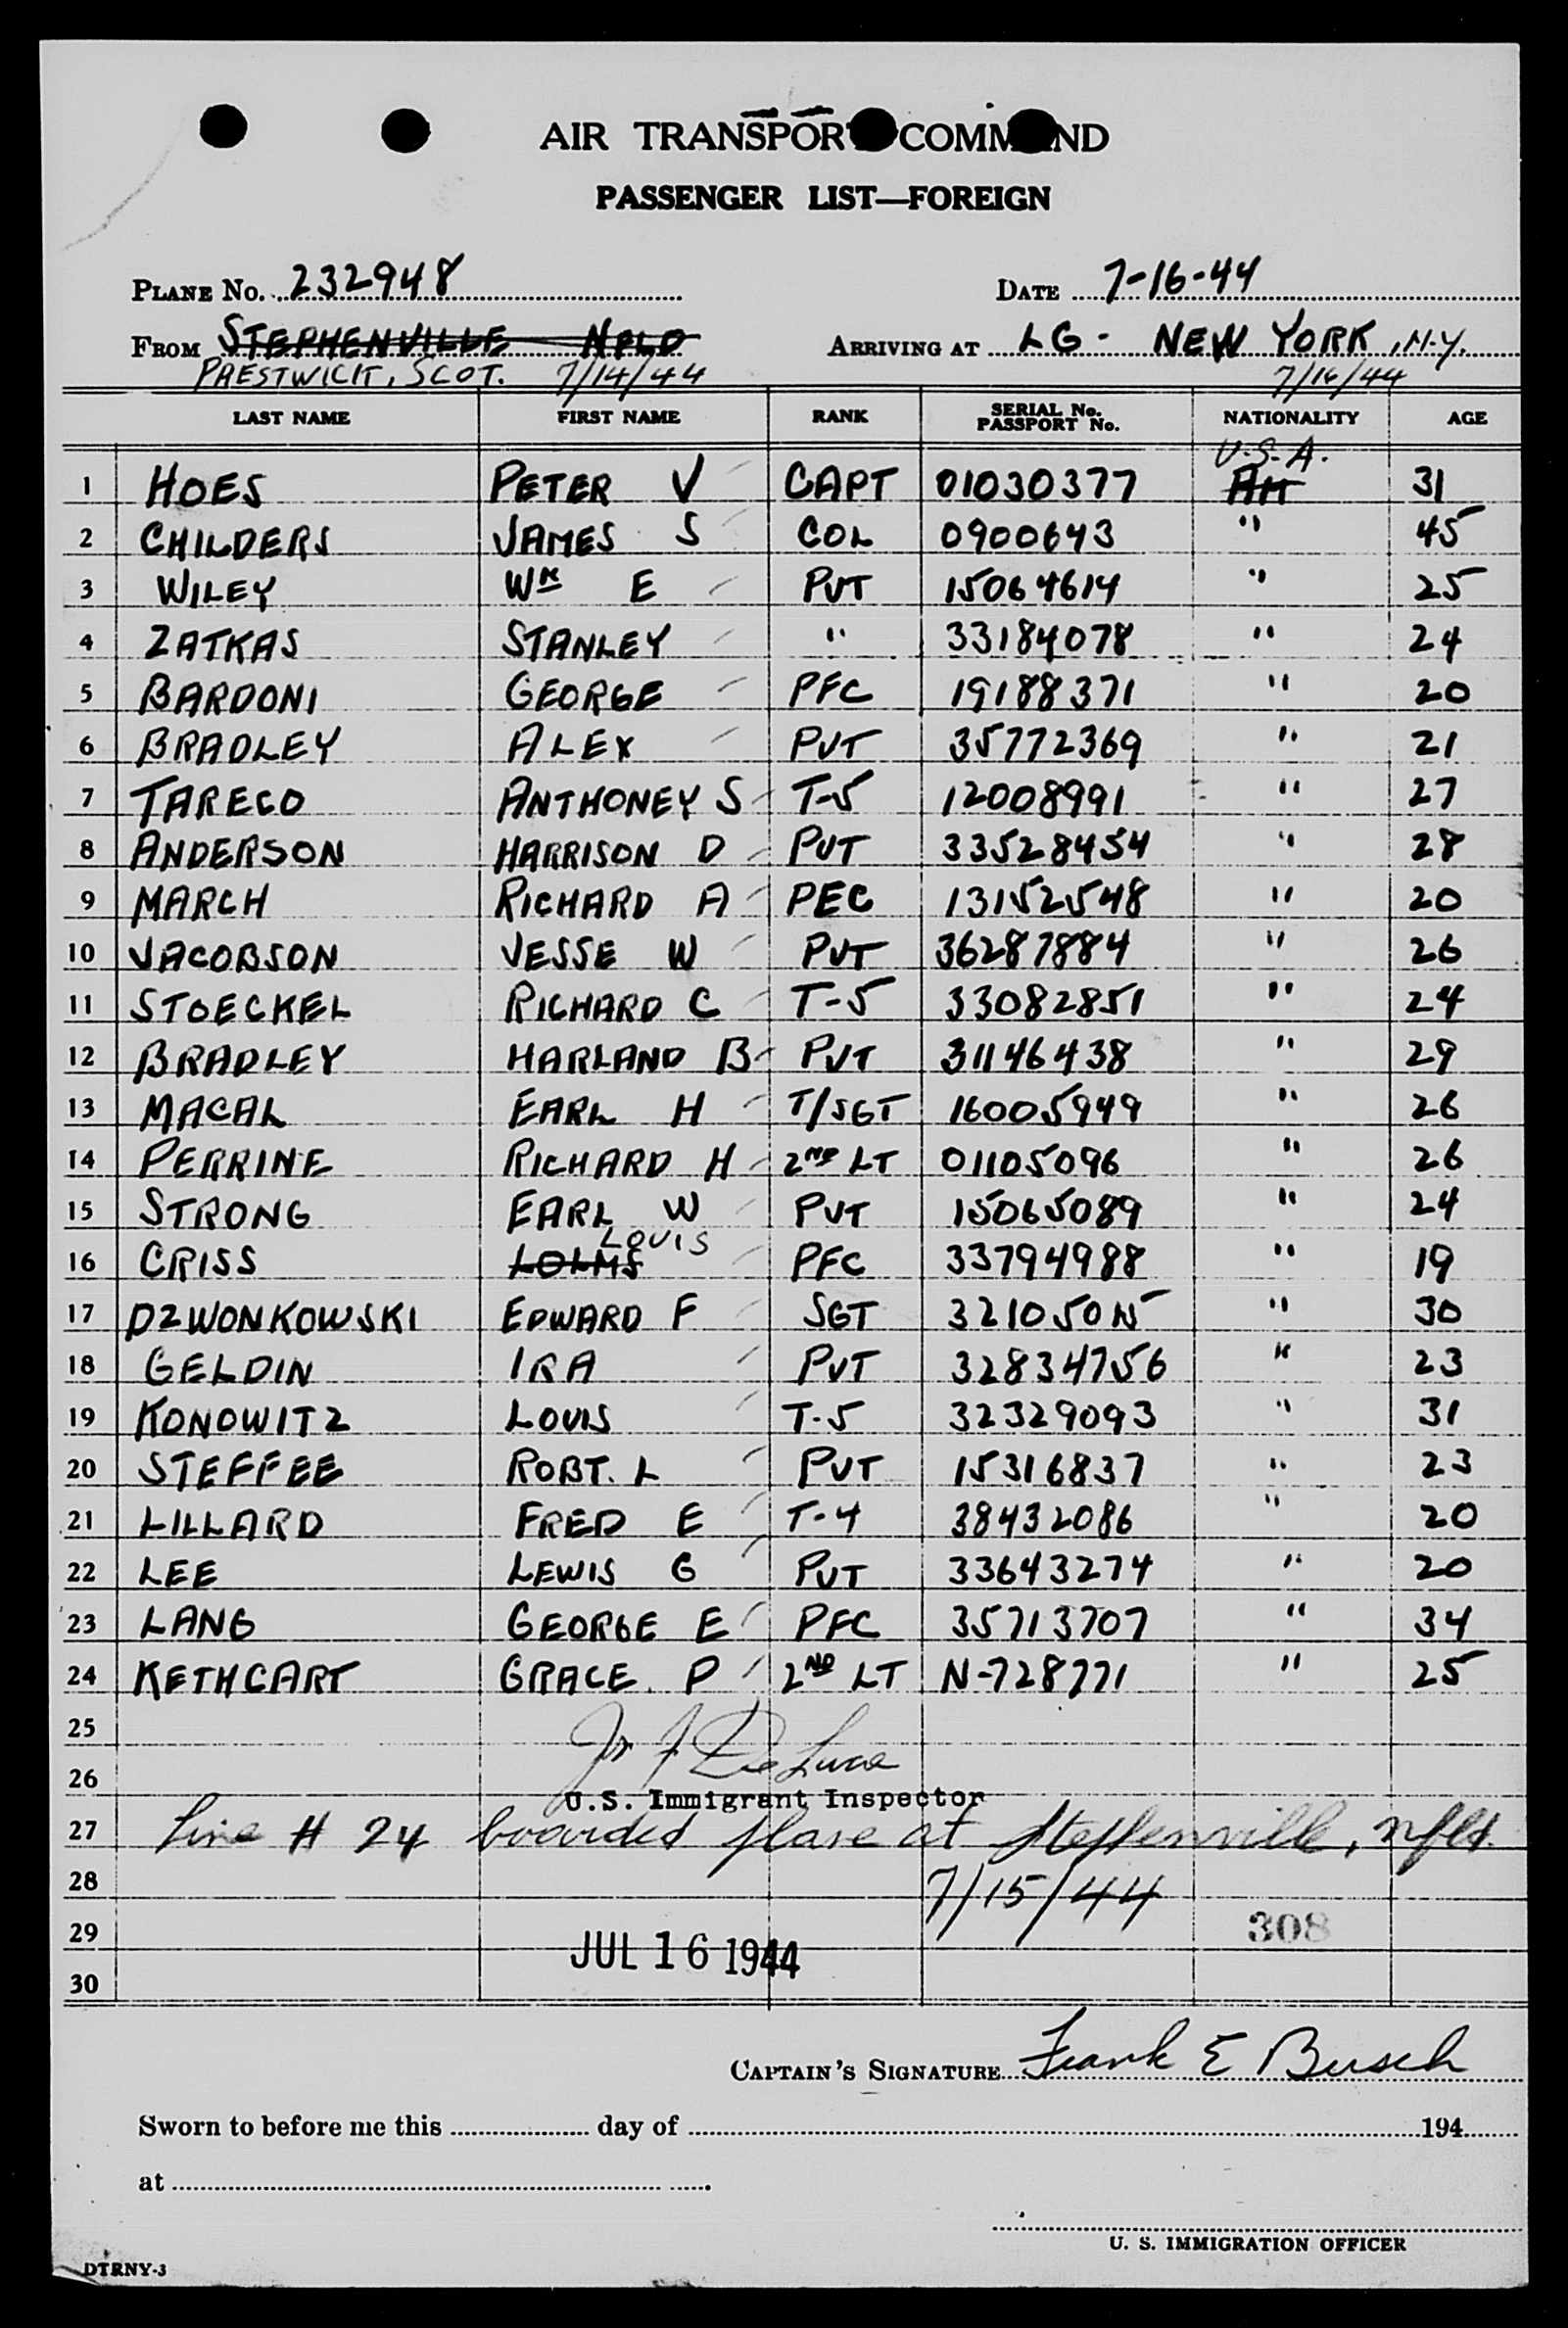 AIR TRANSPORT COMMAND
PASSENGER LIST—FOREIGN
PLANE No. 232948 DATE 7-16-44
FROM STEPHENVILLE NFLD ARRIVING AT LG - NEW YORK, N.Y.
PRESTWICK, SCOT. 7/14/44 7/16/44
LAST NAME FIRST NAME RANK SERIAL No. PASSPORT No. NATIONALITY AGE
U.S.A.
1 HOES PETER V CAPT 01030377 AM 31
2 CHILDERS JAMES S COL 0900643 " 45
3 WILEY WM E PVT 15064614 " 25
4 ZATKAS STANLEY " 33184078 " 24
5 BARDONI GEORGE PFC 19188371 " 20
6 BRADLEY ALEX PVT 35772369 " 21
7 TARECO ANTHONEY S T-5 12008991 " 27
8 ANDERSON HARRISON D PVT 33528454 " 28
9 MARCH RICHARD A PFC 13152548 " 20
10 JACOBSON JESSE W PVT 36287884 " 26
11 STOECKEL RICHARD C T-5 33082851 " 24
12 BRADLEY HARLAND B PVT 31146438 " 29
13 MACAL EARL H T/SGT 16005949 " 26
14 PERRINE RICHARD H 2ND LT 01105096 " 26
15 STRONG EARL W PVT 15065089 " 24
LOUIS
16 CRISS PFC 33794988 " 19
17 DZWONKOWSKI EDWARD F SGT 32105015 " 30
18 GELDIN IRA PVT 32834756 " 23
19 KONOWITZ LOUIS T-5 32329093 " 31
20 STEFFEE ROBT. L PVT 15316837 " 23
21 LILLARD FRED E T-4 38432086 " 20
22 LEE LEWIS G PVT 33643274 " 20
23 LANG GEORGE E PFC 35713707 " 34
24 KETHCART GRACE P 2ND LT N-728771 " 25
25
De Luca
26
U.S. Immigrant Inspector
27 Line # 24 boarded plane at Stephenville, Nfld.
28 7/15/44
29 308
JUL 16 1944
30
CAPTAIN'S SIGNATURE Frank E Busch
Sworn to before me this day of 194
at
U. S. IMMIGRATION OFFICER
DTRNY-3